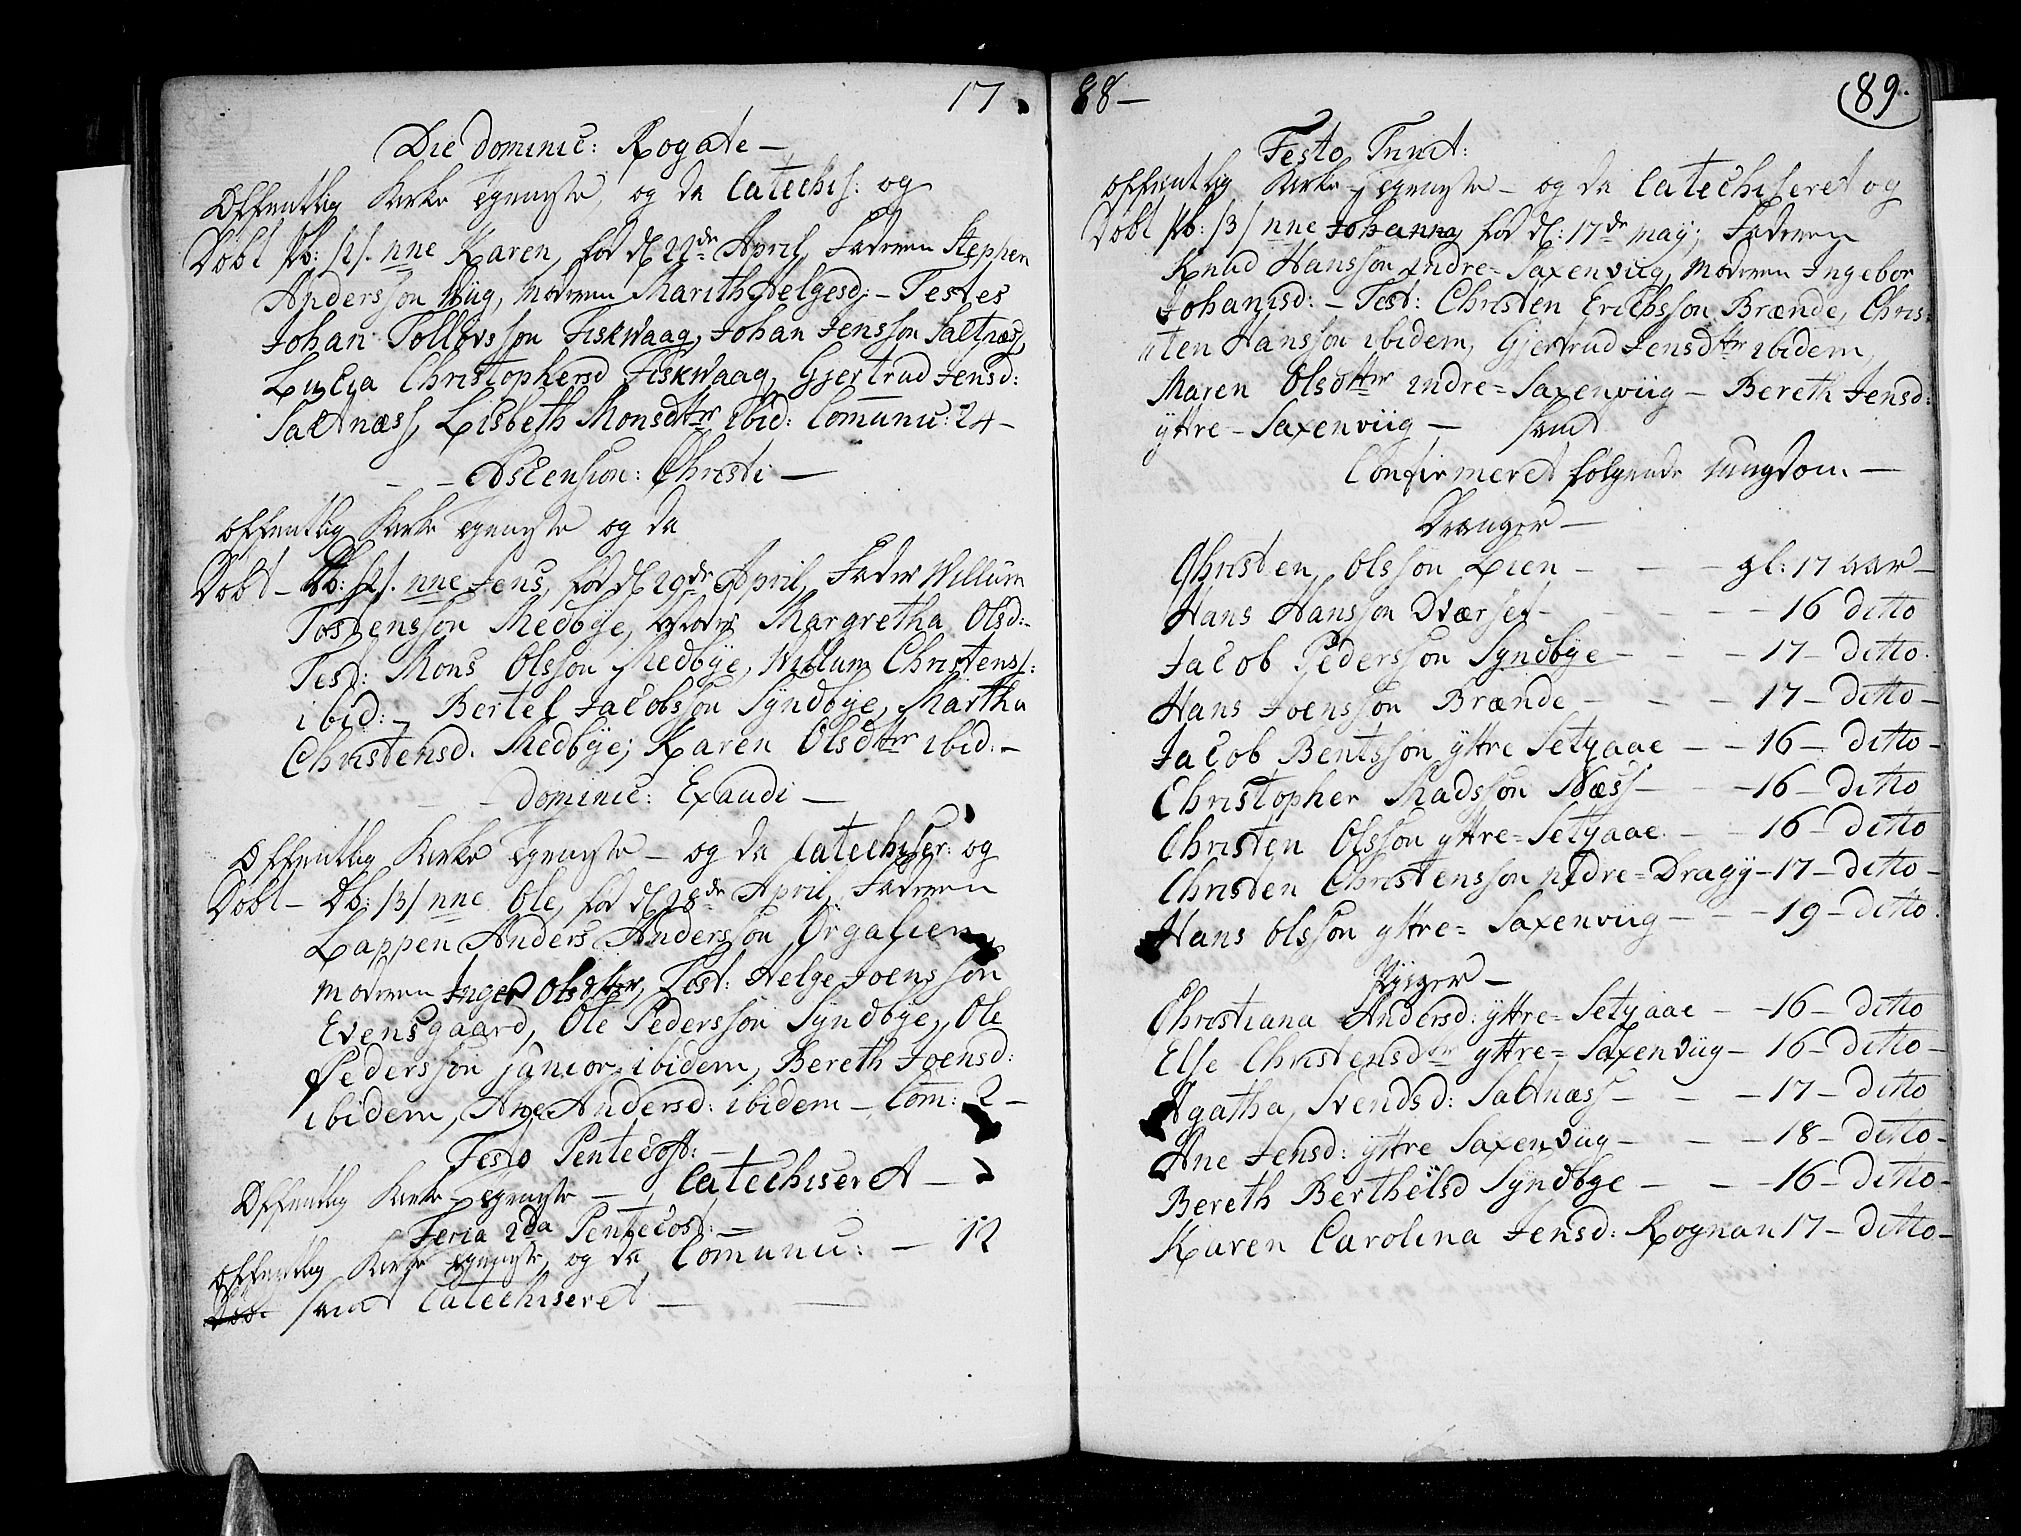 17
Die Dominic: Rogate —
Offentlig Kirke Tieneste, og da Catechis: og
Døbt Pb: /2/. nne Karen, fød d. 22de April, Faderen Stephen
Andersson Viig, Moderen Marith Helgesd: – Testes
Johan Tollevsson Fiskwaag, Johan Jensson Saltnæss,
Lucia Christophersd Fiskwaag, Gjertrud Jensd:
Saltnæss, Lisbeth Monsdttr ibid: Comunic: 24 –
– – Ascension: Christi —
Offentlig Kirke Tieneste og da
Døbt – Db: /2/. nne Jens, fød d. 29de April, Fader Willum
Tostensson Medbye, Moder Margretha Olsd: –
Test: Mons Olsson Medbye, Willum Christenss:
ibid: – Bertel Jacobsson Syndbye, Martha
Christensd. Medbye; Karen Olsdttr ibid: –
– – Dominic: Exaudi —
Offentlig Kirke Tieneste – og da Catechiser: og
Døbt – Db: /3/ nne Ole, fød d. 28de April, Faderen
Lappen Anders Andersson Orgalien,
Moderen Inger Olsdttr, Test: Helge Joensson
Evensgaard, Ole Pedersson Syndbye, Ole
Pedersson junior ibidem, Bereth Joensd:
ibidem, Ane Andersd: ibidem – Com: 2 –
Festo Pentecost: –
Offentlig Kirke Tieneste – Catechiseret –
Feria 2da Pentecost: –
Offentlig Kirke Tieneste, og da Comunic: – 12
Døbt samt Catechiseret —
88 —
89.
Festo Trinit:
Offentlig Kirke-Tieneste – og da Catechiseret og
Døbt Pb: /3/ nne Johanna, fød d: 17de May; Faderen
Knud Hansson indre = Saxenviig, Moderen Ingebor
Johanisd: – Test: Christen Erichsson Brænde, Chris=
ten Hansson ibidem, Gjertrud Jensdttr ibidem,
Maren Olsdttr indre = Saxenviig – Bereth Jensd:
yttre – Saxenviig – samt
Confirmeret følgende ungdom. —
Drænger —
Christen Olsson Lien – – – gl: 17 aar –
Hans Hansson Dværset – – – 16 ditto
Jacob Pedersson Syndbye – – – 17 – ditto.
Hans Joensson Brænde – – – 17 – ditto –
Jacob Bentsson yttre Setyaae – – 16 – ditto –
Christopher Madsson Næss – – – 16 – ditto
Christen Olsson yttre = Setyaae – – 16 – ditto
Christen Christensson indre = Dragy – 17 – ditto –
Hans Olsson yttre = Saxenviig – – – 19 – ditto.
Piiger —
Christiana Andersd: yttre = Setyaae – – 16 – ditto
Else Christensdtr yttre = Saxenviig – 16 – ditto –
Agatha Svendsd: Saltnæss – – – 17 – ditto
Ane Jensd: yttre Saxenviig – – – 18 – ditto –
Bereth Berthelsd Syndbye – – – 16 – ditto –
Karen Carolina Jensd: Rognan 17 – ditto –